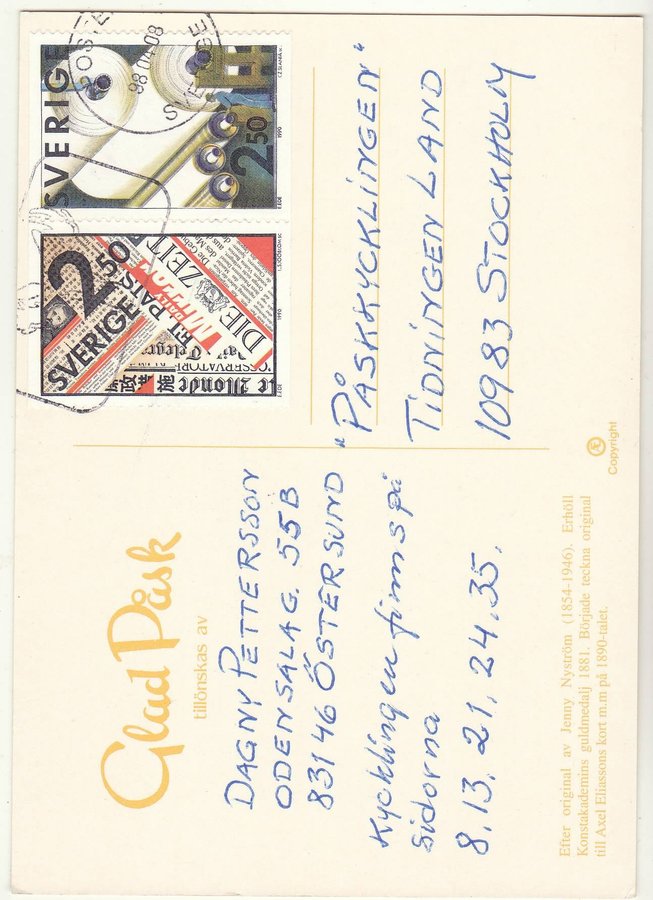 Glad Påsk
tillönskas av
DAGNY PETTERSSON
ODENSALAG. 55B
831 46 ÖSTERSUND
Kycklingen finns på
sidorna
8. 13. 21. 24. 35.
Efter original av Jenny Nyström (1854-1946). Erhöll
Konstakademins guldmedalj 1881. Började teckna original
till Axel Eliassons kort m.m på 1890-talet.
SVERIGE
2 50
1990
2 50
SVERIGE
EL PAIS
DIE ZEIT
L'OSSERVATOR
Le Monde
政 施
1990
POSTEN
98 04 08
SVERIGE
"PÅSKKYCKLINGEN"
TIDNINGEN LAND
10983 STOCKHOLM
Æ
Copyright